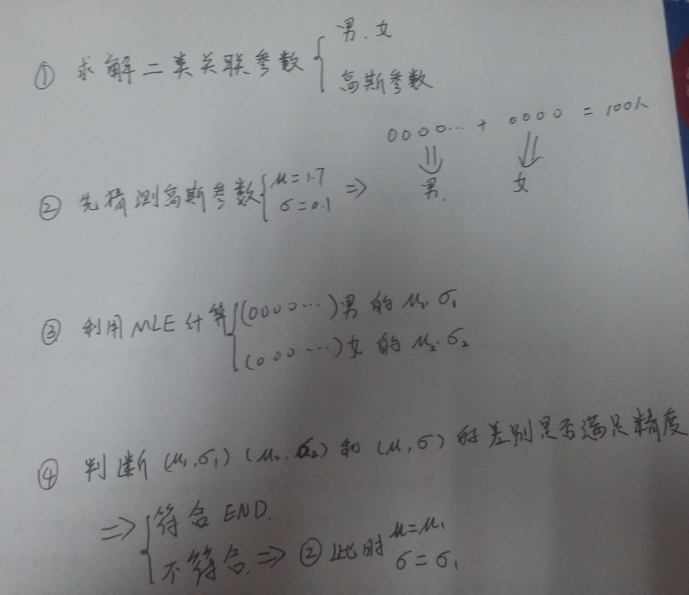 ① 求解二类关联参数 { 男、女
高斯参数
0000… + 0000 = 100人
② 先猜测高斯参数 { μ=1.7 ⇒ ⇓ ⇓
σ=0.1 男. 女
③ 利用MLE计算 { (0000…)男的 μ₁.σ₁
(000…)女的 μ₂.σ₂
④ 判断 (μ₁,σ₁) (μ₂,σ₂) 和 (μ,σ) 的差别是否满足精度
⇒ { 符合 END.
不符合. ⇒ ② 此时 μ=μ₁
σ=σ₁